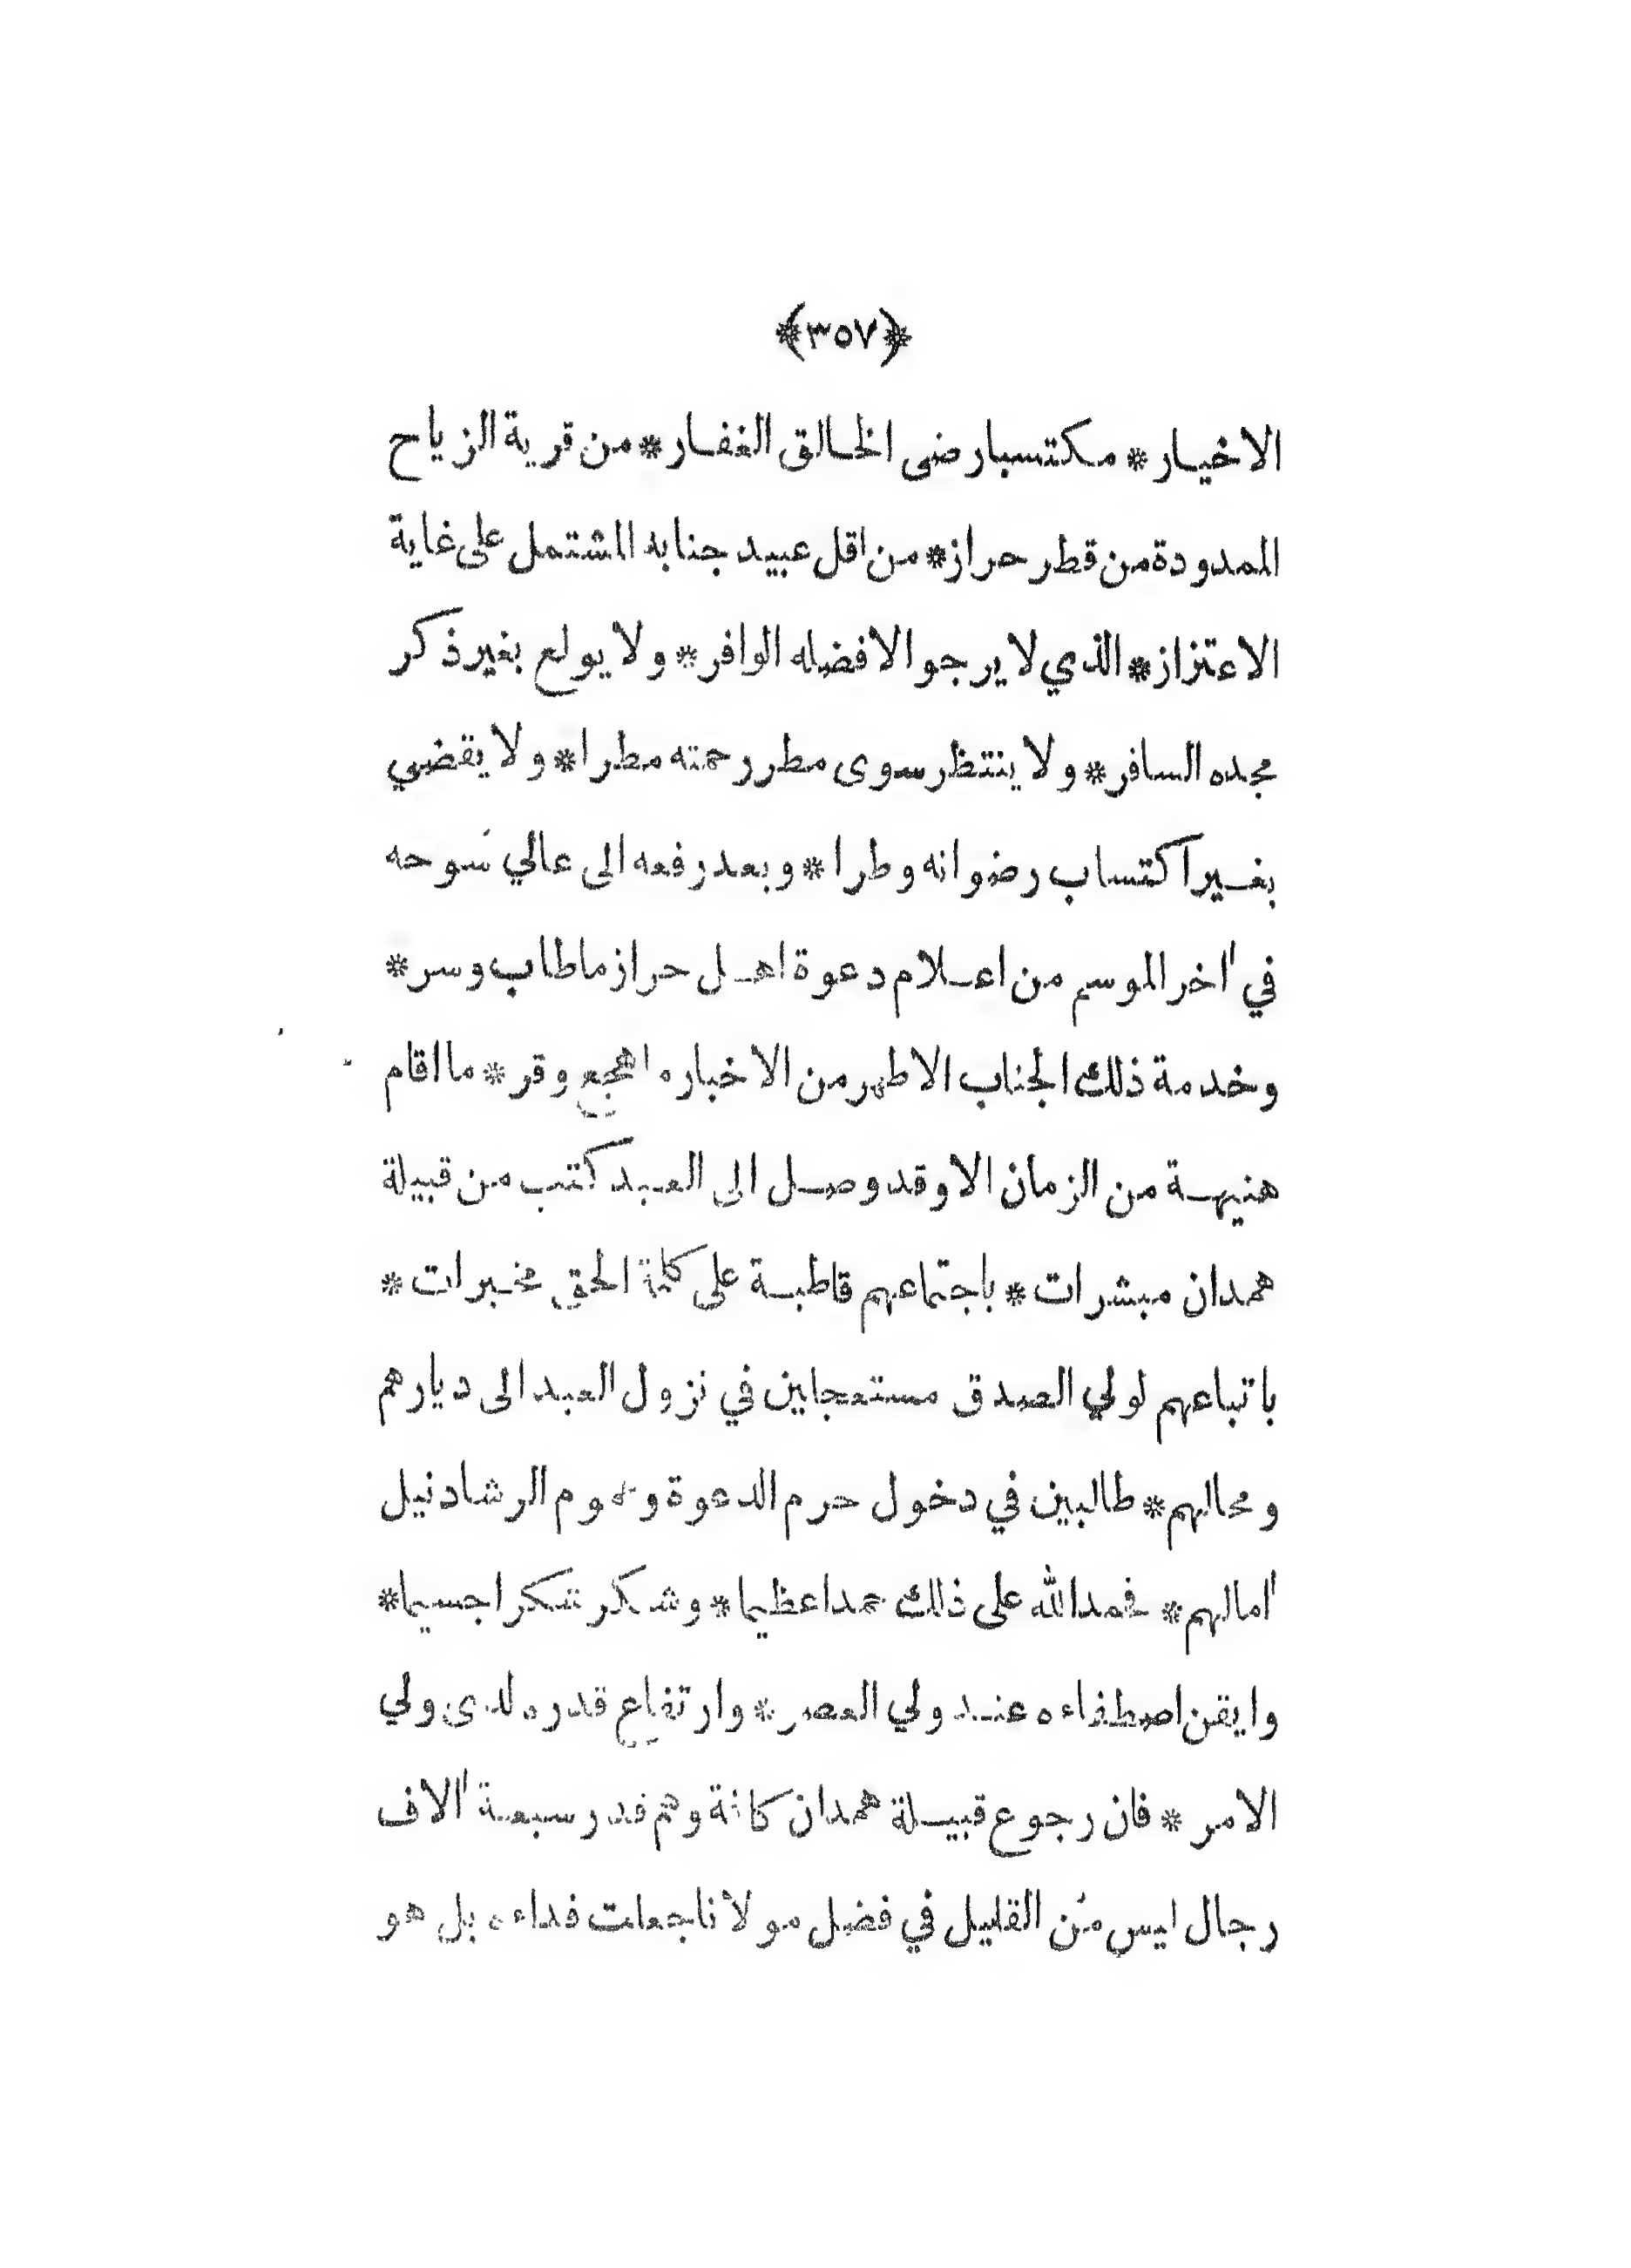 ﴿٣٥٧﴾
الاخيار * مكتسبا رضى الخالق الغفار * من قرية الزياح
المدودة من قطر حراز * من اقل عبيد جنابه المشتمل على غاية
الاعتزاز * الذي لا يرجو الا فضله الوافر * ولا يولع بغير ذكر
مجده السافر * ولا ينتظر سوى مطر رحمته مطرا * ولا يقضي
بغير اكتساب رضوانه وطرا * وبعد رفعه الى عالي سوحه
في اٰخر الموسم من اعلام دعوة اهل حراز ما طاب وسر *
وخدمة ذلك الجناب الاطهر من الاخبار ه اهجع وقر * ما اقام
هنيهة من الزمان الا وقد وصل الى العبد كتب من قبيلة
همدان مبشرات * باجتماعهم قاطبة على كلمة الحق مخبرات *
باتباعهم لولي الصدق مستعجلين في نزول العبد الى ديارهم
ومحالهم * طالبين في دخول حرم الدعوة الرشاد نيل
اٰمالهم * فحمد الله على ذلك حمدا عظيما * وشكر شكرا جسيما *
وايقن اصطفاءه عند ولي العصر * وارتفاع قدره لدى ولي
الامر * فان رجوع قبيلة همدان كافة وهم قدر سبعة اٰلاف
رجال ليس من القليل في فضل مولانا جعلت فداءه بل هو